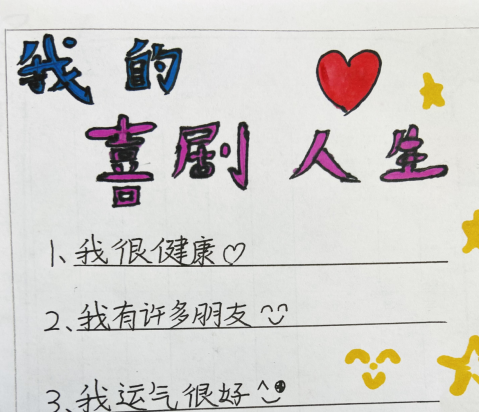 我的
喜剧人生
1、我很健康♡
2、我有许多朋友
3、我运气很好